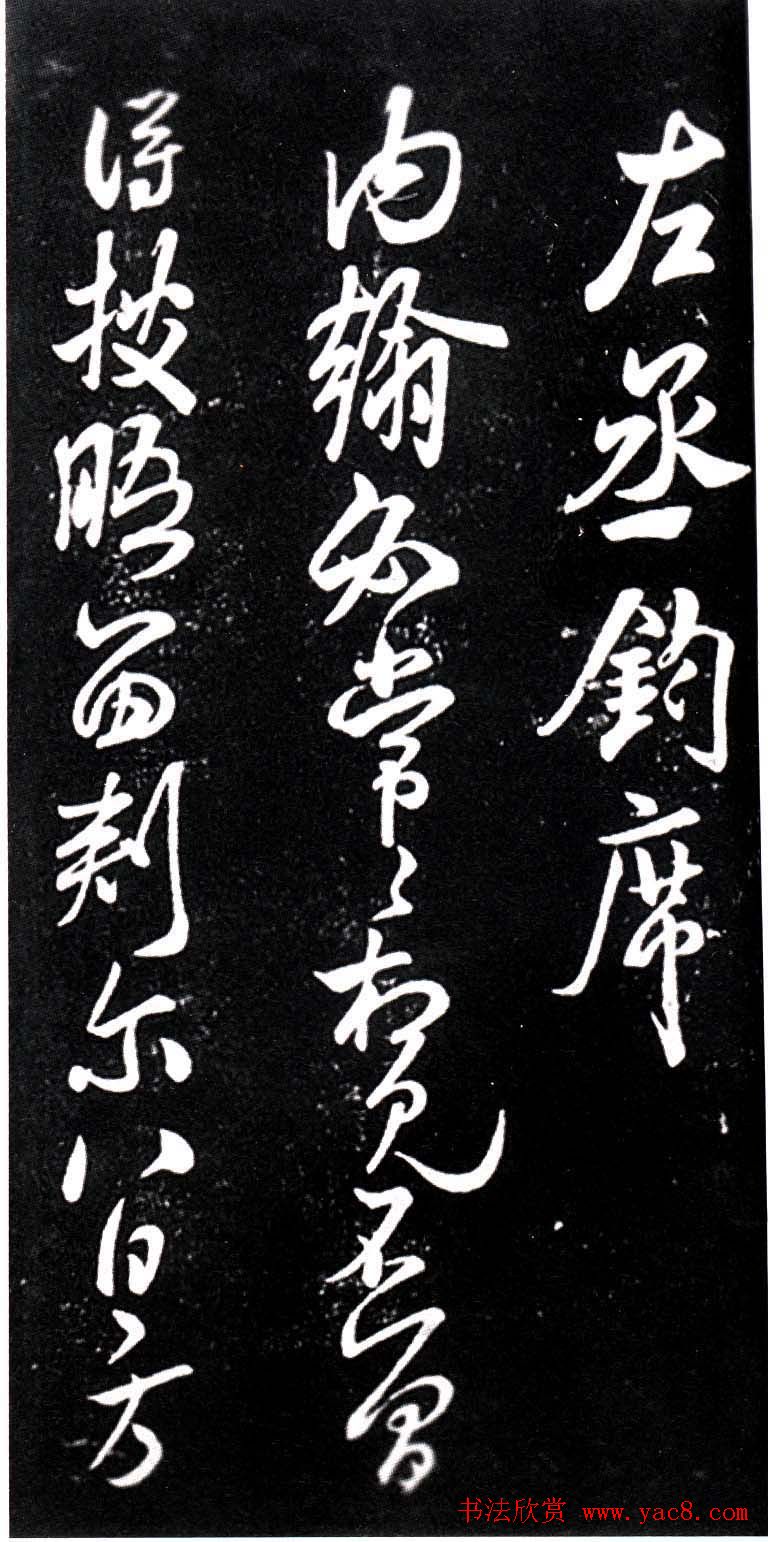 左丞鈞席
内翰必常々相見否曾
得披晤留刻尔八日方
书法欣赏 www.yac8.com